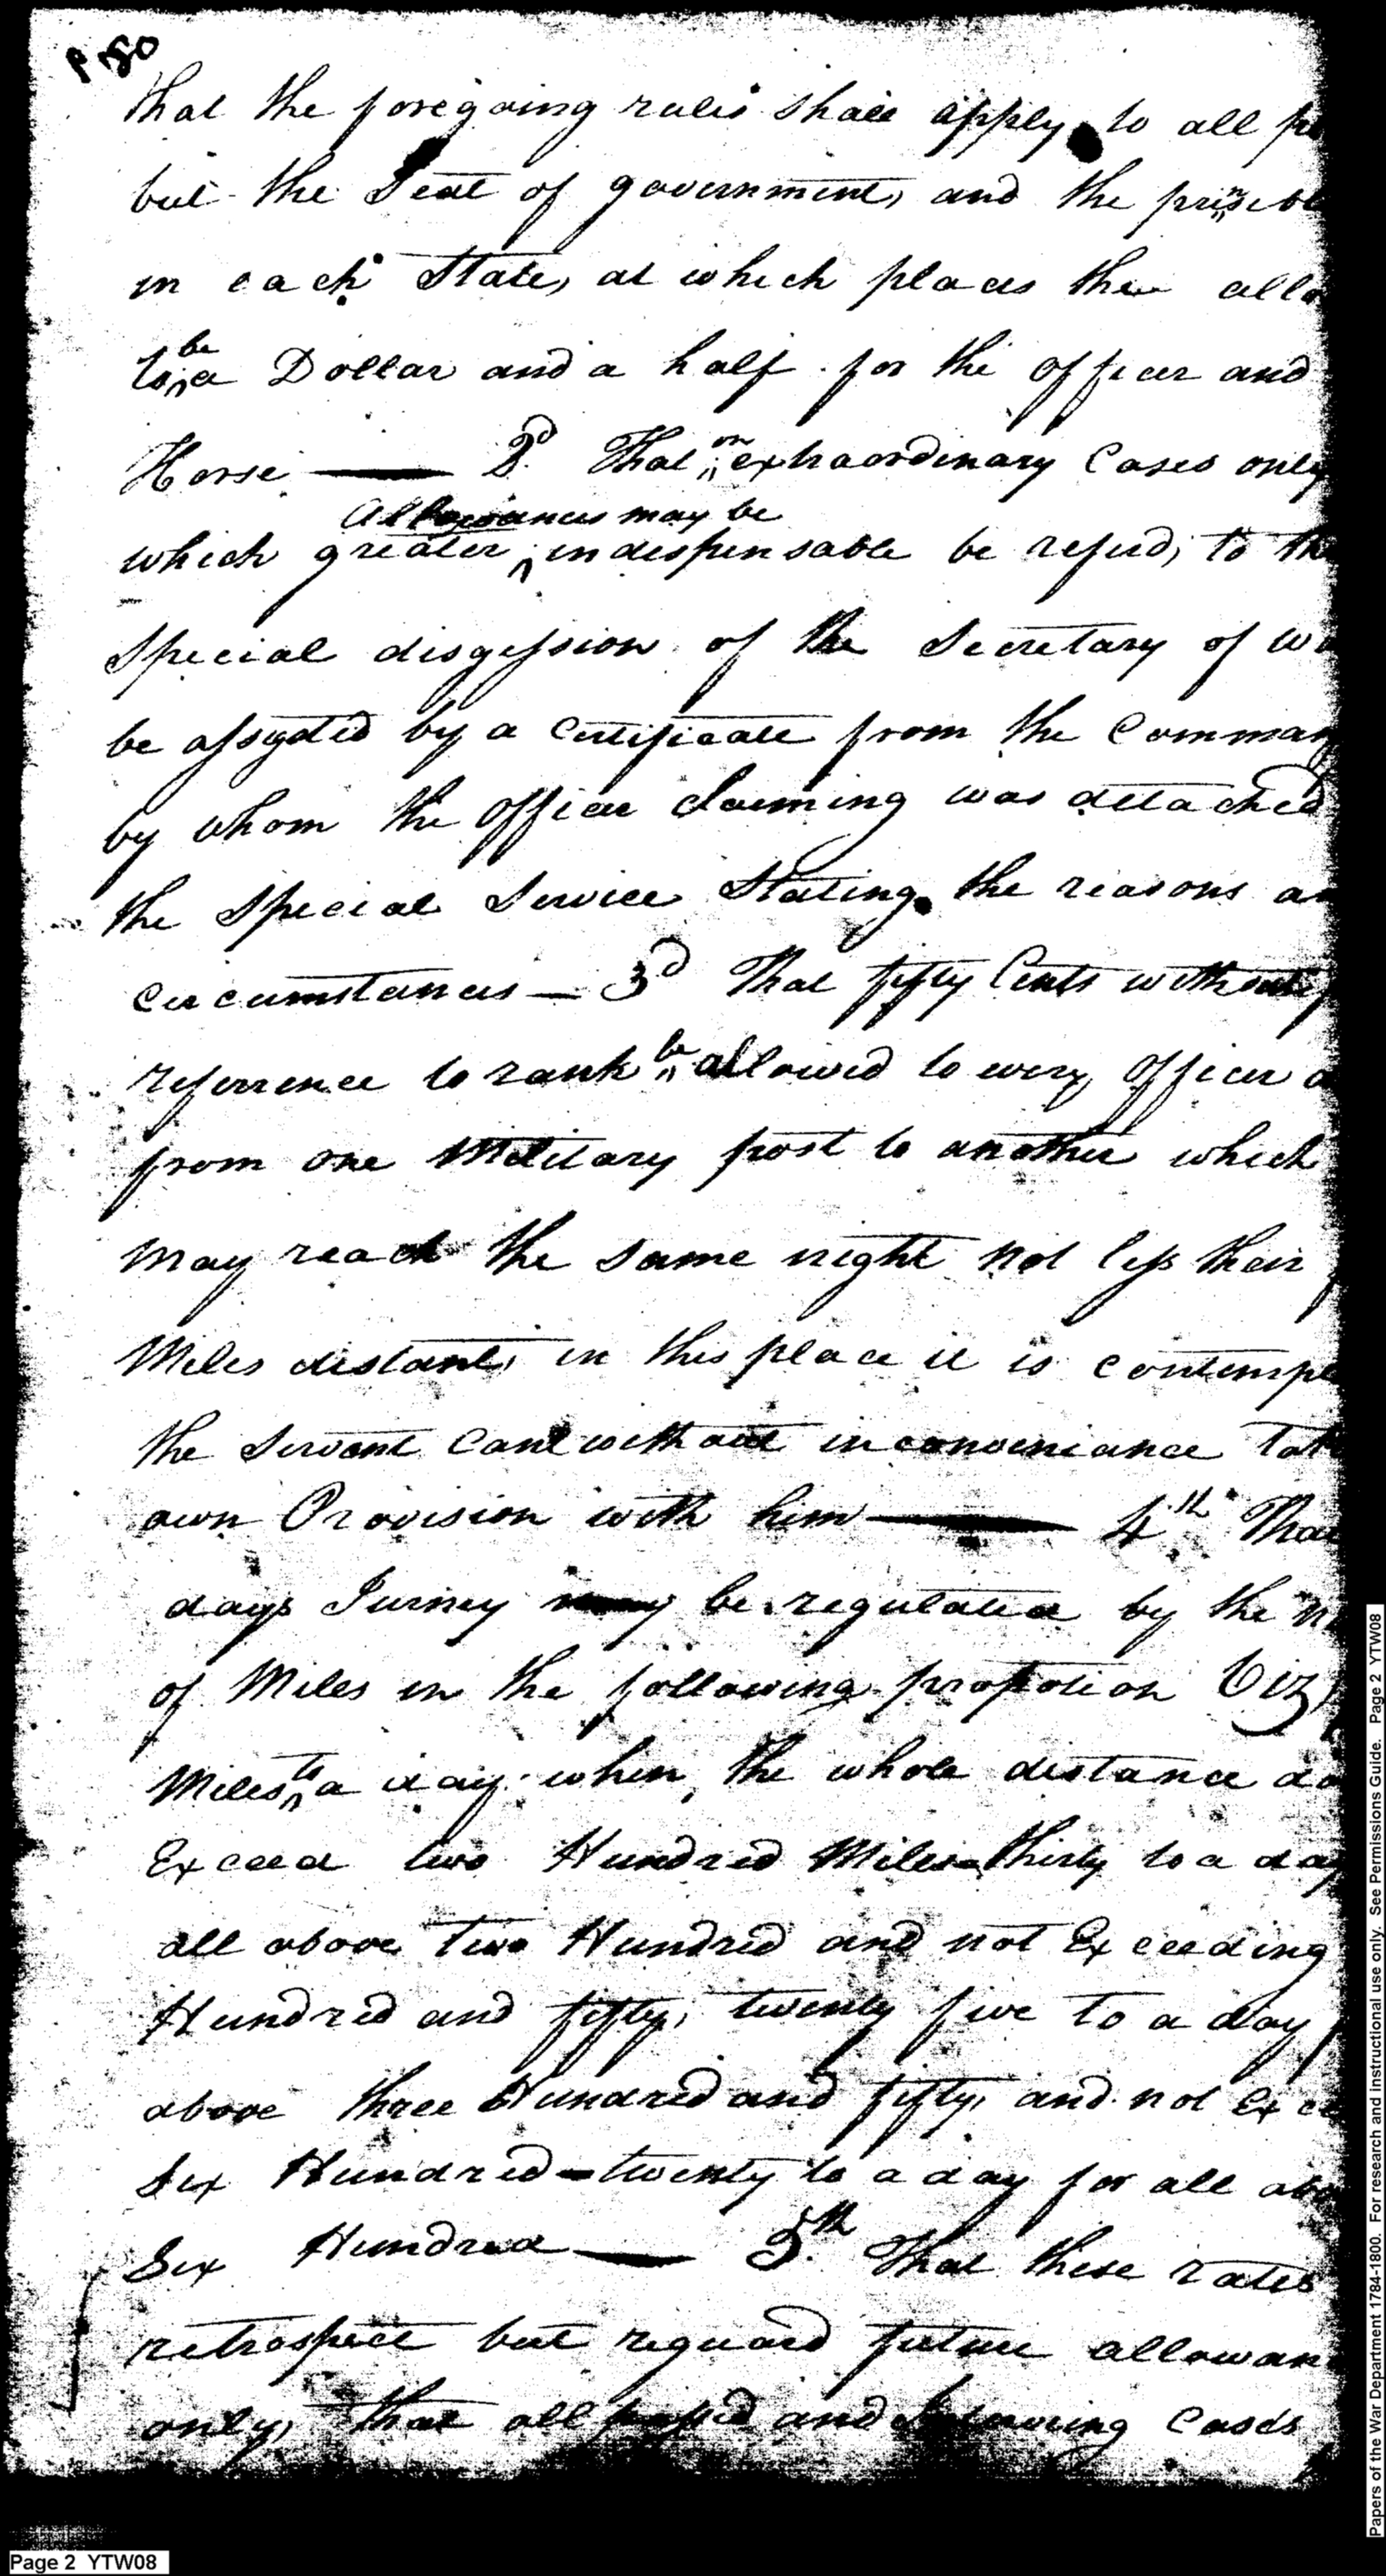 P 50
that the foregoing rules shall apply to all
but the Seat of government, and the
in each State, at which places the
to be a Dollar and a half for the officer and
Horse — 2d. That on extraordinary Cases only
Allowances may be
which greater indispensable be referd, to the
Special disgession of the Secretary of
be by a Certificate from the
by whom the Officer Claiming was detached
the Special Service Stating the reasons
Circumstances — 3d That fifty Cents without
referrence to rank be allowed to every Officer
from one Military post to another which
may reach the same night not less then
Miles distant, in this place it is
the Servant Can without inconveniance
own Provision with him — 4th That
days Jurney may be regulated by the
of Miles in the following propotion Viz
Miles to a day when, the whole distance
Exceed two Hundred Miles thirty to a day
all above two Hundred and not Exceeding
Hundred and fifty, twenty five to a day
above three Hundred and fifty, and not
Six Hundred — twenty to a day for all
Six Hundred — 5th. That these rates
retrospect but reguard future
only, that all passed and Cases
Page 2 YTW08
Papers of the War Department 1784-1800. For research and instructional use only. See Permissions Guide. Page 2 YTW08